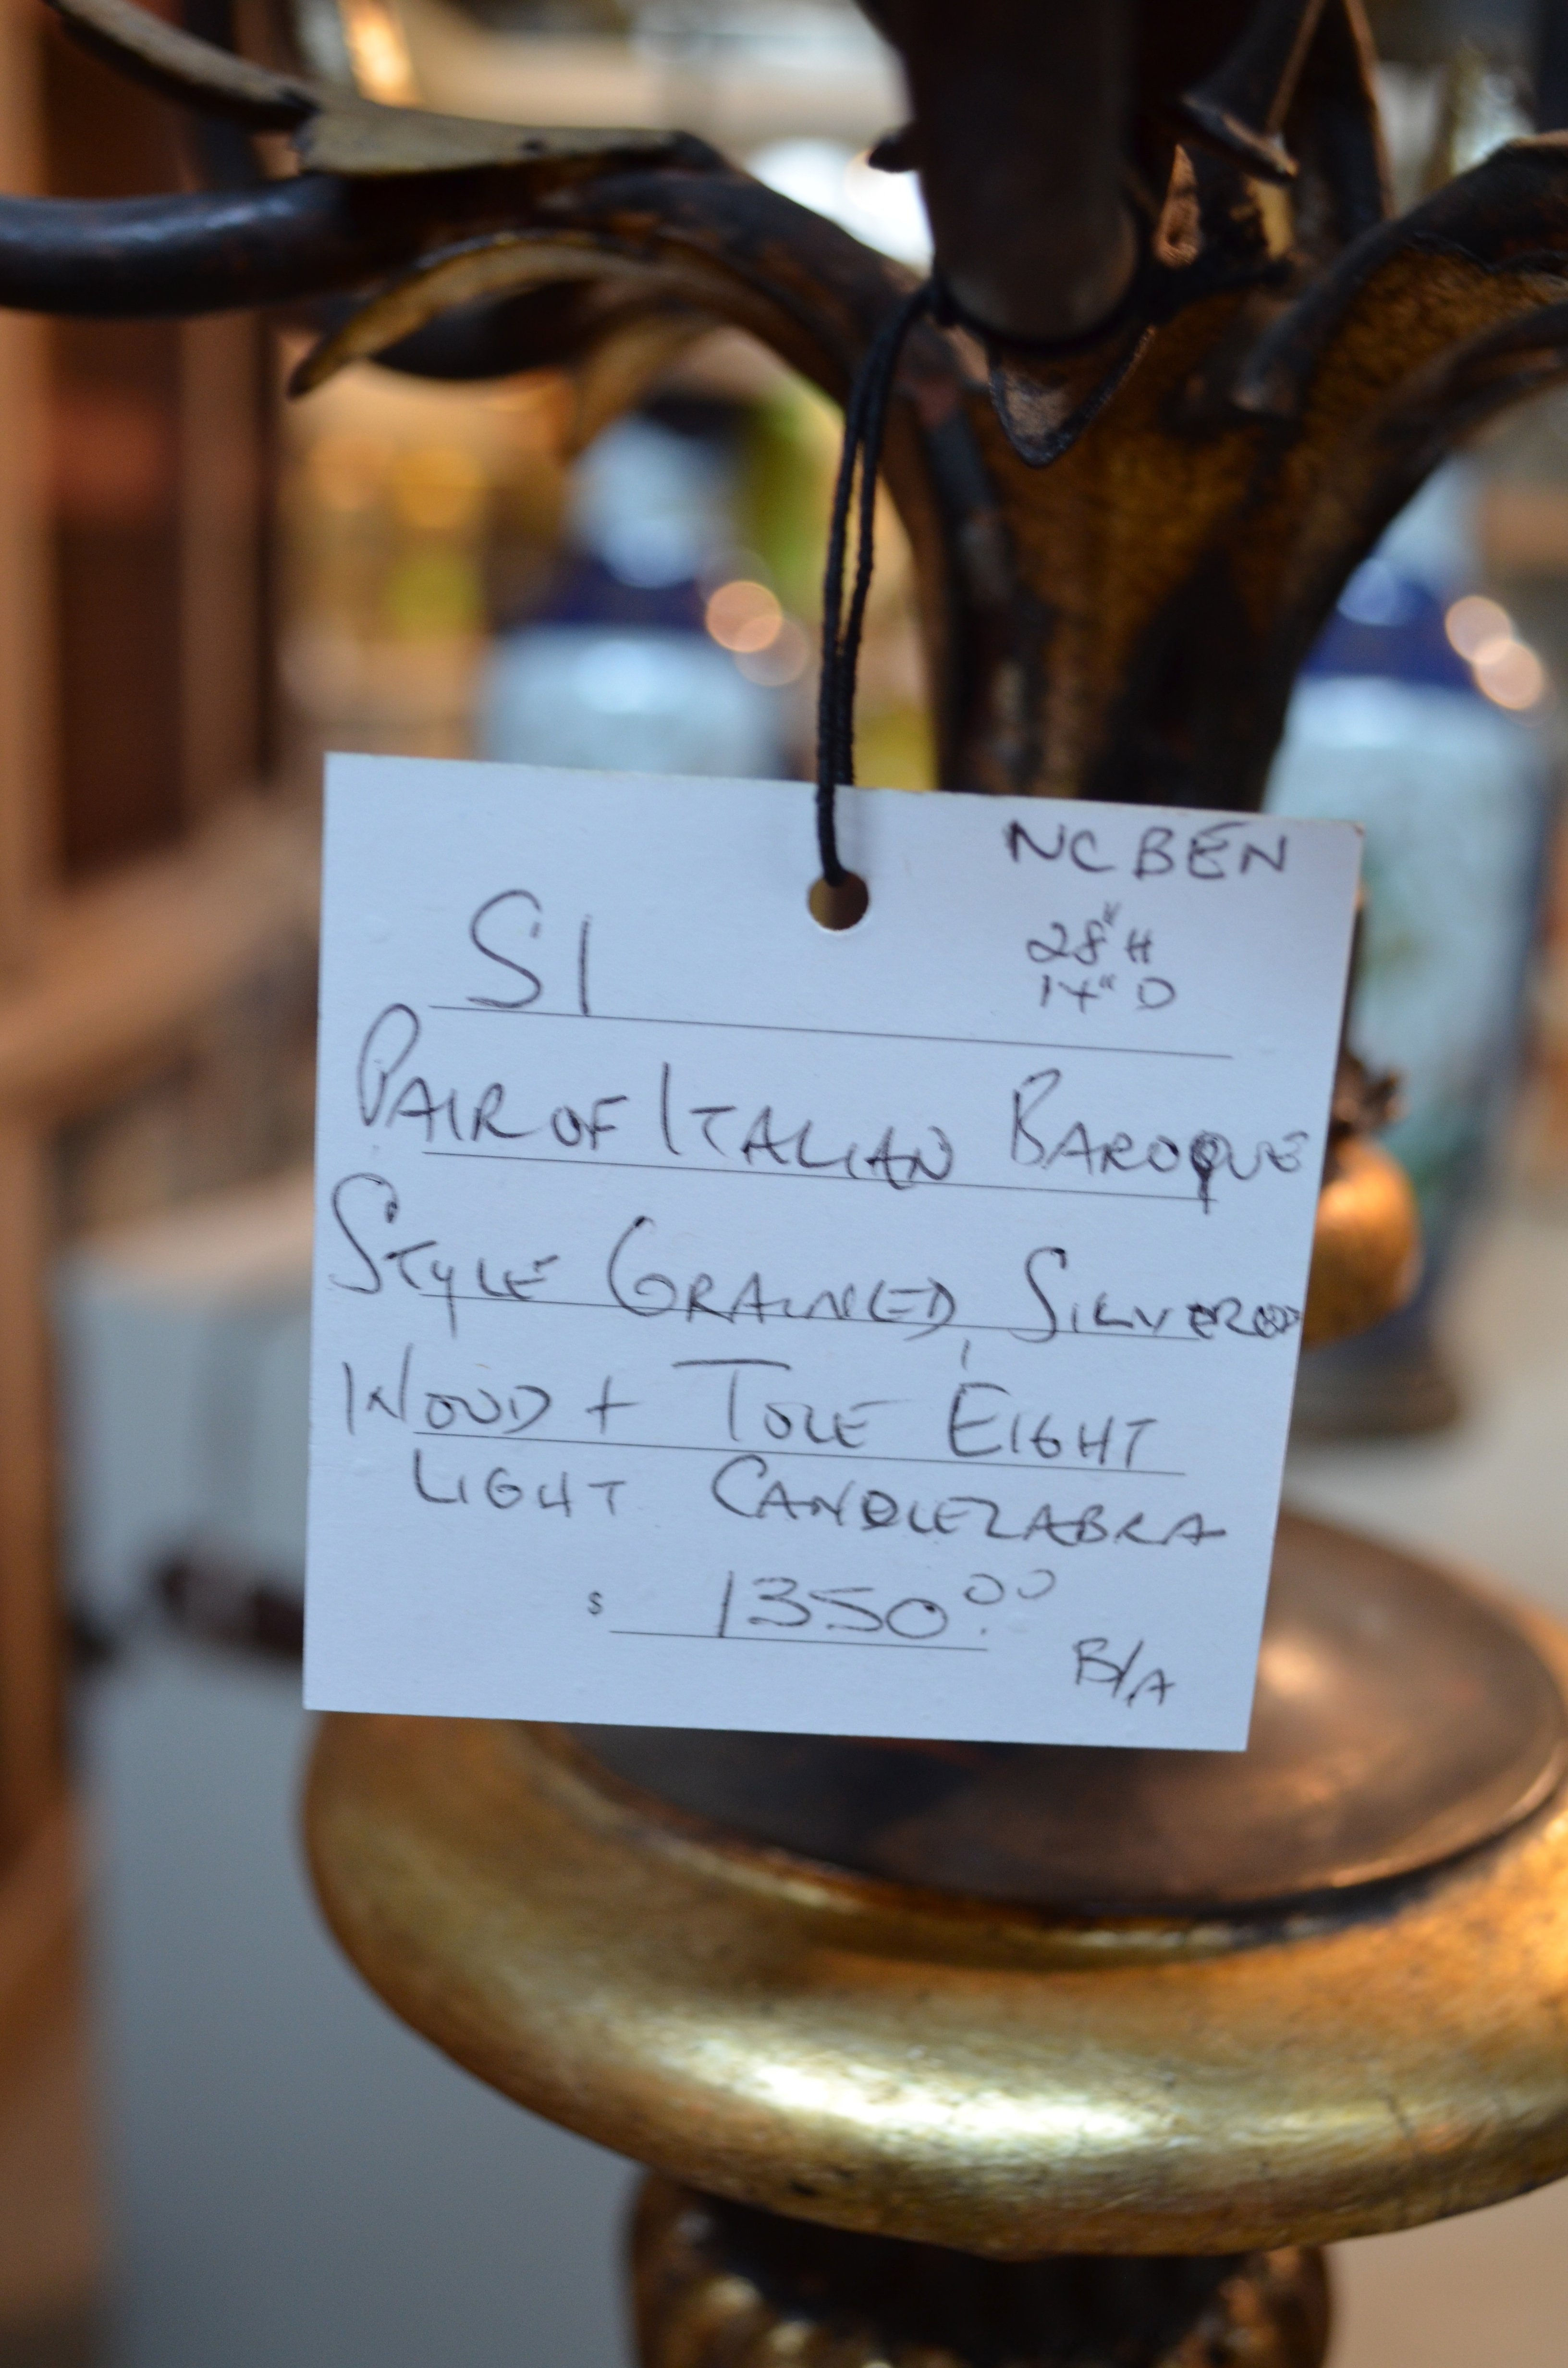 NCBEN
28" H
14" D
S1
PAIR OF ITALIAN BAROQUE
STYLE GRAINED, SILVERED
WOOD + TOLE EIGHT
LIGHT CANDLEZABRA
$ 1350.00
B/A